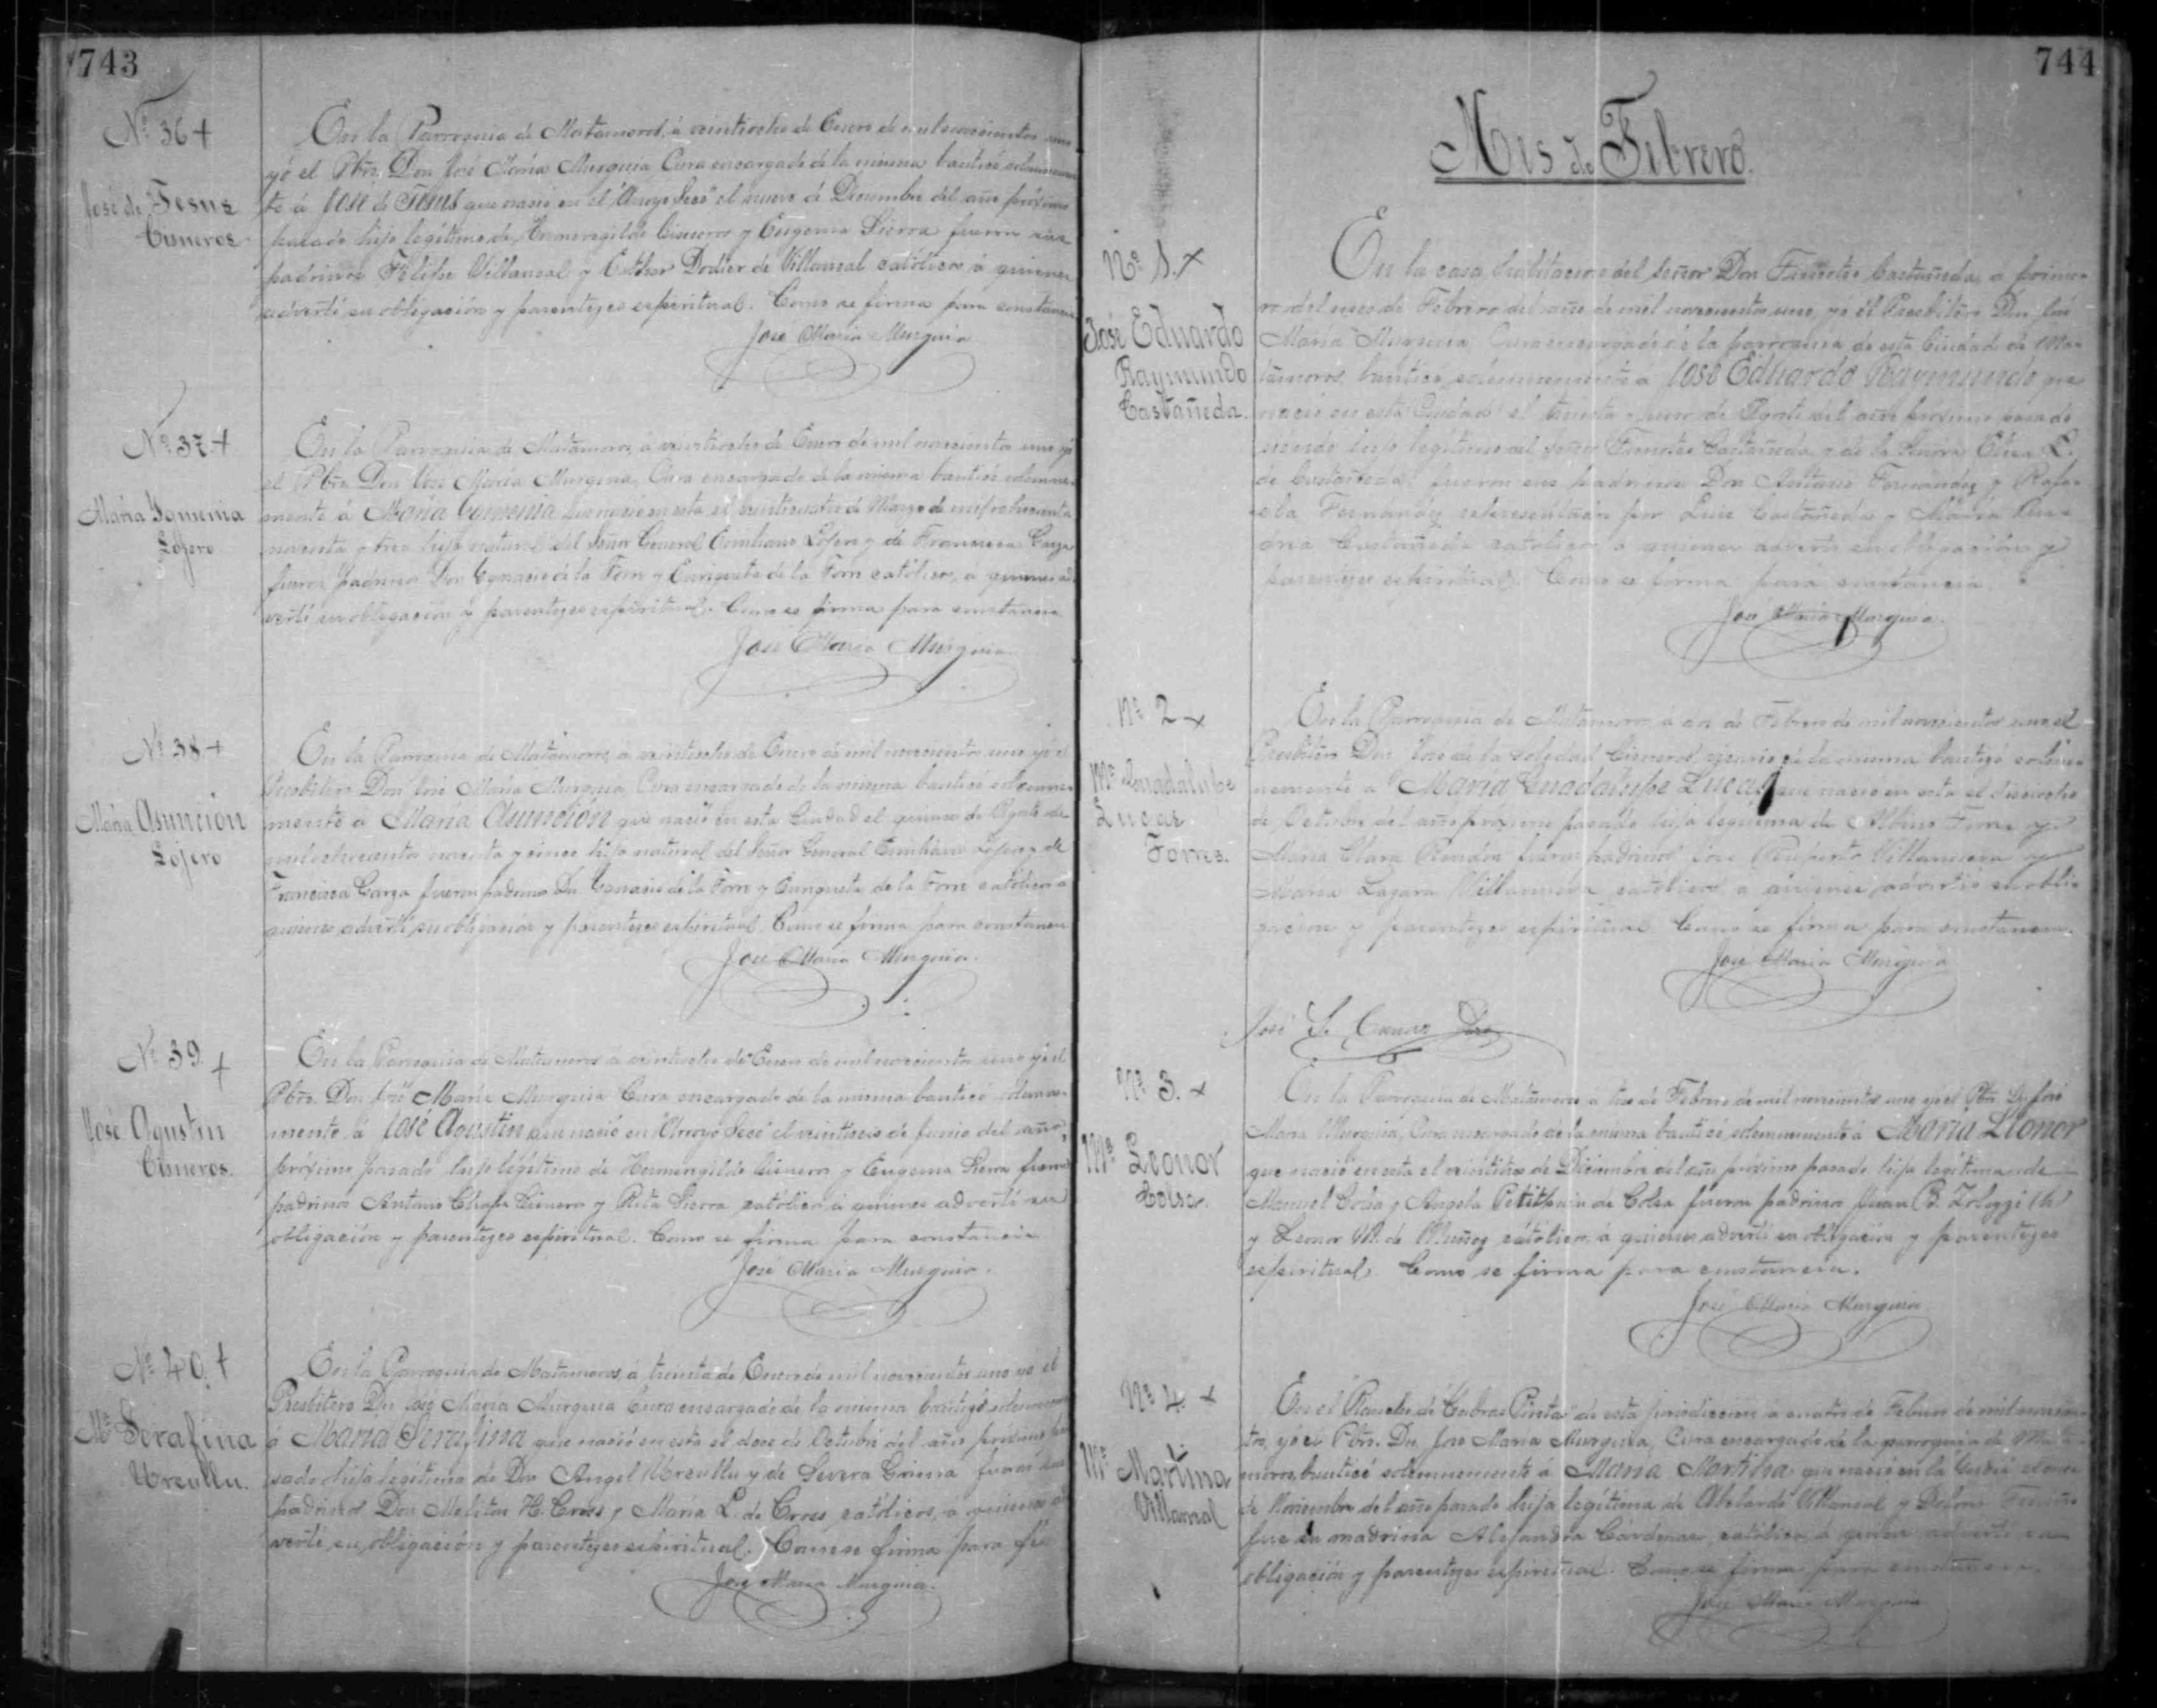 743
Nº 36 +
José de Jesus
Cisneros.
En la Parroquia de Matamoros, á veintiocho de Enero de mil novecientos uno
yó el Pbro. Don José María Murguia Cura encargado de la misma bauticé solemnemen
te á José de Jesus que nació en el "Arroyo Seco" el nueve de Diciembre del año próximo
pasado hijo legítimo de Hermenegildo Cisneros y Eugenia Sierra fueron sus
padrinos Felipe Villareal y Esther Dodier de Villareal católicos á quienes
advertí su obligación y parentezco espiritual. Como se firma para constancia
José María Murguia.
Nº 37 +
María Ygmenia
Lojero
En la Parroquia de Matamoros, á veintiocho de Enero de mil novecientos uno yó
el Pbro. Don José María Murguia, Cura encargado de la misma bauticé solemne-
mente á María que nació en esta el veinticuatro de Marzo de mil ochocientos
noventa y tres hija natural del Señor General Emiliano Lojero y de Francisca Garza
fueron padrinos Don Ygnacio de la Torre y Enriqueta de la Torre católicos, á quienes ad-
vertí su obligación y parentezco espiritual. Como se firma para constancia
José María Murguia.
Nº 38 +
María Asunción
Lojero
En la Parroquia de Matamoros, á veintiocho de Enero de mil novecientos uno yó el
Presbítero Don José María Murguia, Cura encargado de la misma bauticé solemne-
mente á María Asunción que nació en esta Ciudad el quince de Agosto de
mil ochocientos noventa y cinco hija natural del Señor General Emiliano Lojero y de
Francisca Garza fueron padrinos Dn. Ygnacio de la Torre y Enriqueta de la Torre católicos á
quienes advertí su obligación y parentezco espiritual. Como se firma para constancia
José María Murguia.
Nº 39. +
José Agustin
Cisneros.
En la Parroquia de Matamoros á veintiocho de Enero de mil novecientos uno yó el
Pbro. Don José María Murguia Cura encargado de la misma bauticé solemne-
mente á José Agustin que nació en "Arroyo Seco" el veintiseis de Junio del año
próximo pasado hijo legítimo de Hermenegildo Cisneros y Eugenia Sierra fueron
padrinos Antonio Cisneros y Rita Sierra católicos á quienes advertí su
obligación y parentezco espiritual. Como se firma para constancia
José María Murguia.
Nº 40. +
Mª Serafina
Urcullu.
En la Parroquia de Matamoros, á treinta de Enero de mil novecientos uno yó el
Presbítero Dn. José María Murguia Cura encargado de la misma bautizé solemnemente
á María Serafina que nació en esta el doce de Octubre del año próximo pa
sado hija legítima de Don Angel Urcullu y de Severa Girima fueron sus
padrinos Don Meliton H. Cross y María L. de Cross católicos, á quienes ad
vertí su obligación y parentezco espiritual. Como se firma para fé
José María Murguia.
744
Mes de Febrero.
Nº 1. +
José Eduardo
Raymundo
Castañeda.
En la casa habitacion del Señor Don Timoteo Castañeda, á prime-
ro del mes de Febrero del año de mil novecientos uno, yó el Presbítero Don José
María Murguia Cura encargado de la parroquia de esta Ciudad de Ma-
tamoros, bauticé solemnemente á José Eduardo Raymundo que
nació en esta Ciudad el treinta y uno de Agosto del año próximo pasado
siendo hijo legítimo del señor Timoteo Castañeda y de la Señora Elisa L.
de Castañeda fueron sus padrinos Don Fernandez y Rafa-
ela Fernández representados por Luis Castañeda y María
Castañeda católicos á quienes advertí su obligación y
parentezco espiritual. Como se firma para constancia
José María Murguia.
Nº 2 +
Mª Guadalupe
Lucas
Torres.
En la Parroquia de Matamoros, á dos de Febrero de mil novecientos uno el
Presbítero Don José de la Soledad Cisneros, vicario de la misma bautizó solem-
nemente á María Guadalupe Lucas que nació en esta el dieciocho
de Octubre del año próximo pasado hija legítima de Albino Torres y
María Clara Rendon fueron padrinos José Ruperto Villanueva y
María Lazara Villanueva católicos á quienes advirtió su obli-
gación y parentezco espiritual. Como se firma para constancia.
José María Murguia
José S.
Nº 3. +
Mª Leonor
Colsa.
En la Parroquia de Matamoros, á tres de Febrero de mil novecientos uno yó el Pbro. Dn José
María Murguia, Cura encargado de la misma bauticé solemnemente á María Leonor
que nació en esta el veintitres de Diciembre del año próximo pasado hija legítima de
Manuel Colsa y Angela Petitpain de Colsa fueron padrinos Juan B. Zolezzi (h)
y Leonor M. de Muñoz católicos, á quienes advertí su obligación y parentezco
espiritual. Como se firma para constancia.
José María Murguia
Nº 4. +
Mª Martina
Villareal
En el Rancho de "Cabras Pintas" de esta jurisdiccion á cuatro de Febrero de mil novecien-
tos, yó el Pbro. Dn. José María Murguia, Cura encargado de la parroquia de Ma
moros, bauticé solemnemente á María Martina que nació en la
de Noviembre del año pasado hija legítima de Abelardo Villareal y Dolores
fue su madrina Alejandra Cárdenas, católica, á quien advertí su
obligación y parentezco espiritual. Como se firma para constancia.
José María Murguia